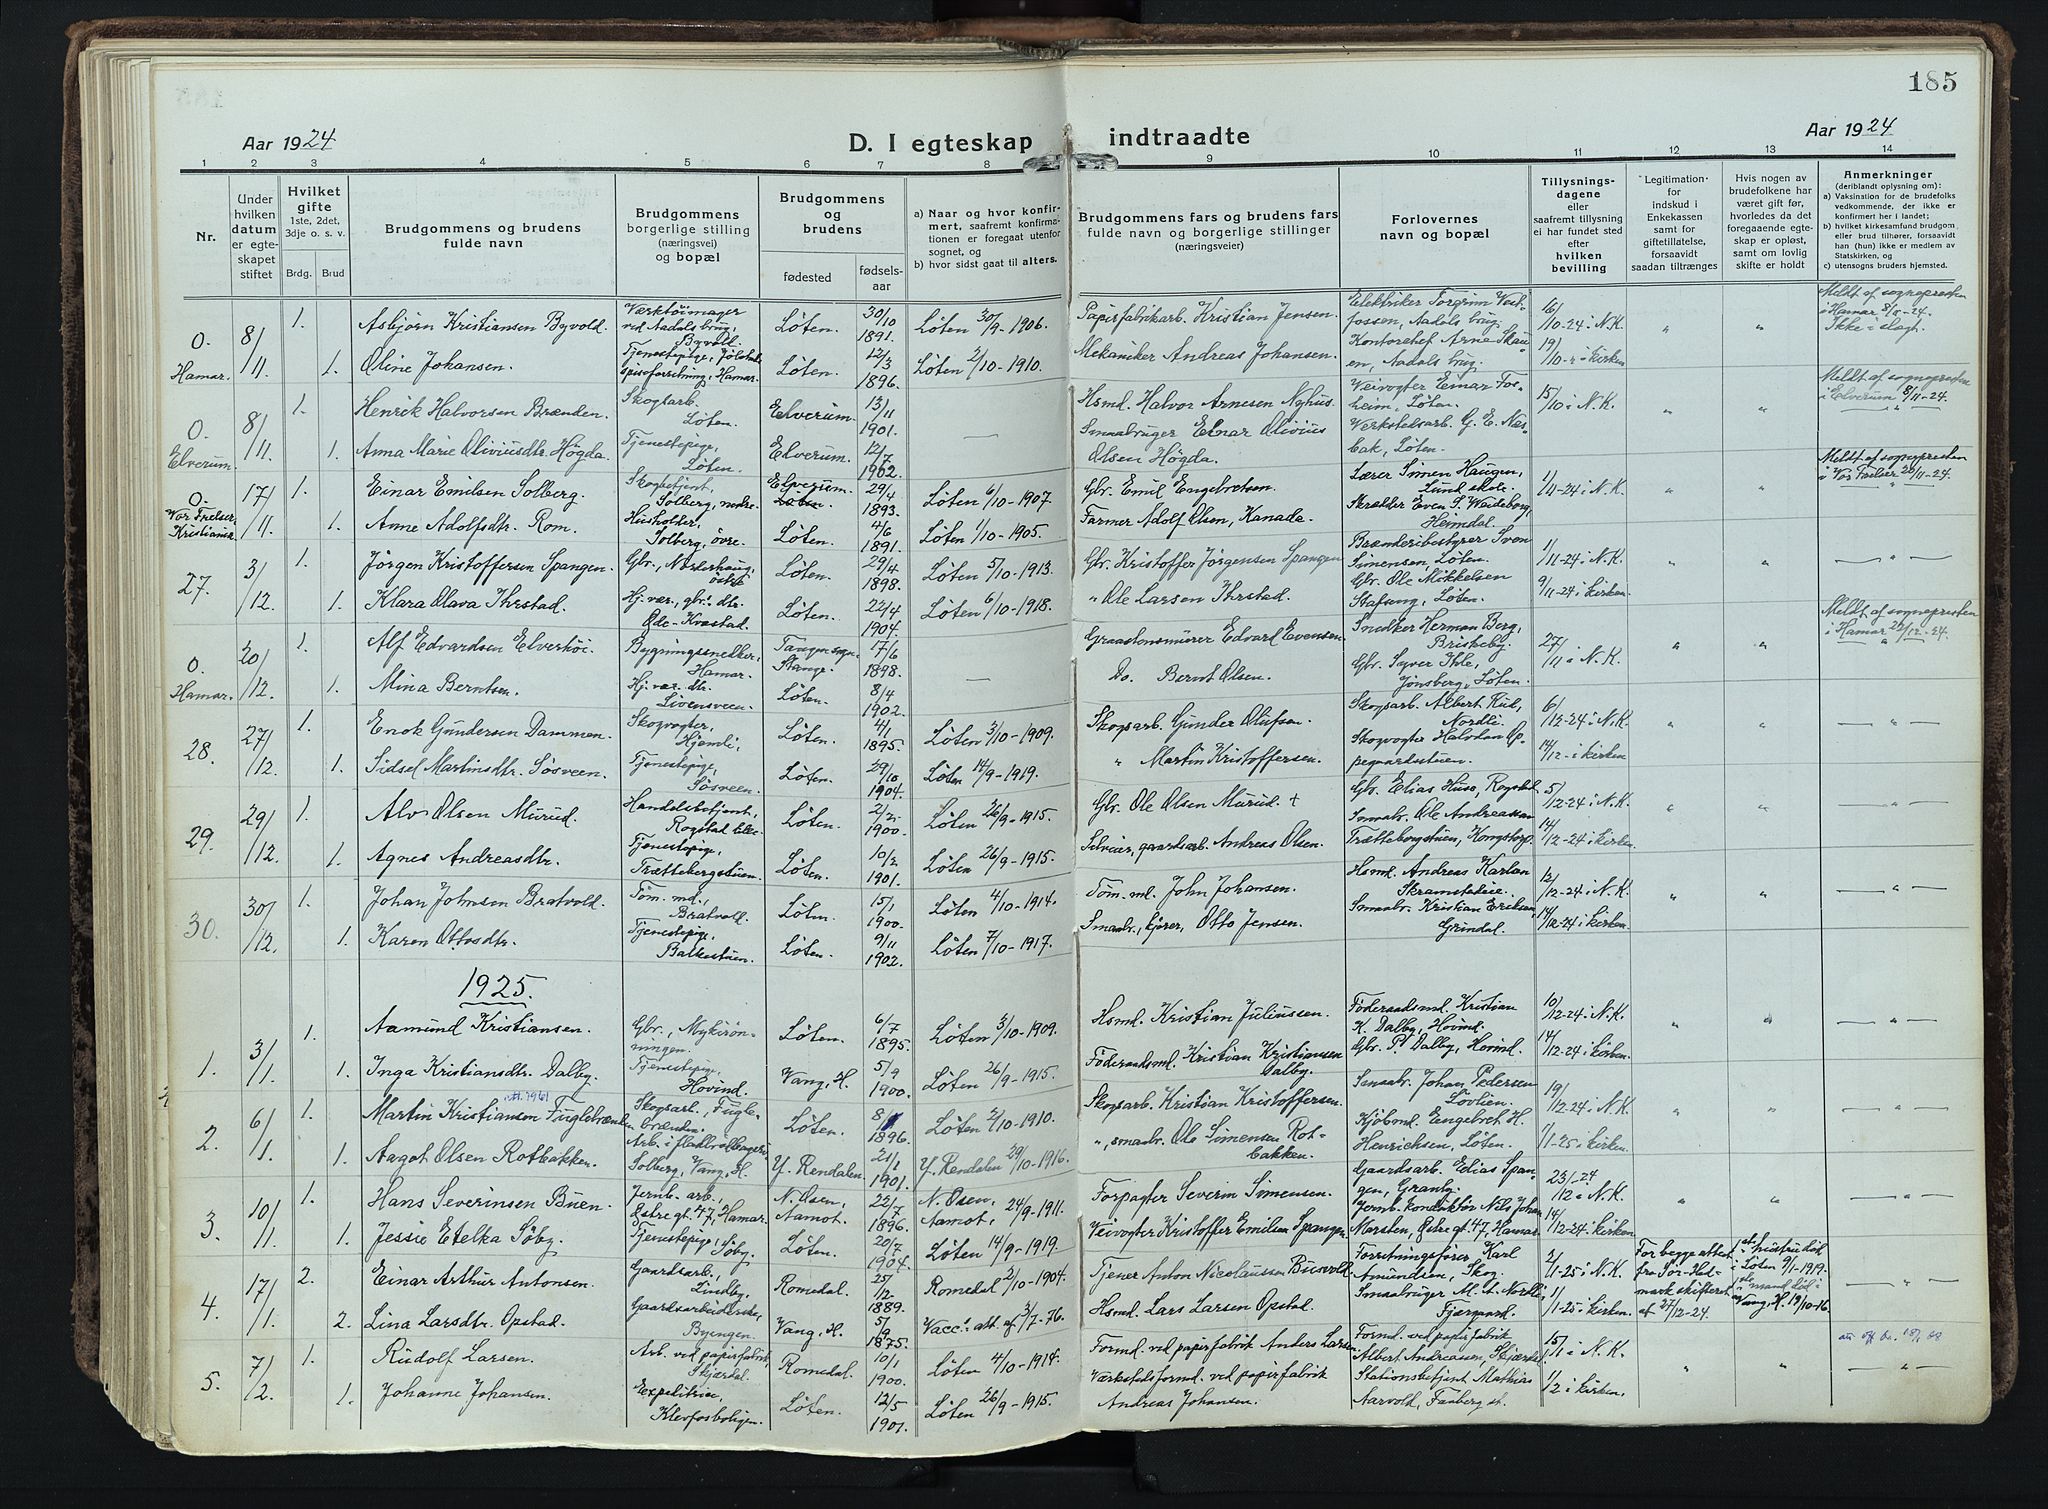 185
Aar 1924
D. I egteskap indtraadte
Aar 1924
1 2 3 4 5 6 7 8 9 10 11 12 13 14
Nr.
Under hvilken datum er egteskapet stiftet
Hvilket gifte 1ste, 2det, 3dje o. s. v.
Brdg. Brud
Brudgommens og brudens fulde navn
Brudgommens borgerlige stilling (næringsvei) og bopæl
Brudgommens og brudens
fødested
fødselsaar
a) Naar og hvor konfirmert, saafremt konfirmationen er foregaat utenfor sognet, og
b) hvor sidst gaat til alters.
Brudgommens fars og brudens fars fulde navn og borgerlige stillinger (næringsveier)
Forlovernes navn og bopæl
Tillysningsdagene eller saafremt tillysning ei har fundet sted efter hvilken bevilling
Legitimation for indskud i Enkekassen samt for giftetillatelse, forsaavidt saadan tiltrænges
Hvis nogen av brudefolkene har været gift før, hvorledes da det foregaaende egteskap er opløst, samt om lovlig skifte er holdt
Anmerkninger (deriblandt oplysning om):
a) Vaksination for de brudefolks vedkommende, der ikke er konfirmert her i landet;
b) hvilket kirkesamfund brudgom eller brud tilhører, forsaavidt han (hun) ikke er medlem av Statskirken, og
c) utensogns bruders hjemsted.
O. Hamar. 8/11. 1. Asbjørn Kristiansen Byvold. Værktøimager ved Aadals brug, Byvoll. Løten. 30/10 1891. Løten 30/9-1906. Papirfabrikarb. Kristian Jensen. Elektriker Torgrim Vestfossen, Aadals brug. 16/10-24 i N.K. " " Meldt af sognepresten i Hamar 8/11-24. Ikke i slagt.
1. Oline Johansen. Tjenestepige, Hamar. Løten. 12/3 1896. Løten 2/10-1910. Mekaniker Andreas Johansen. Kontorchef Arne Skauen, Aadals brug. 19/10- i kirken
O. Elverum. 8/11. 1. Henrik Halvorsen Brænden. Skogsarb. Løten. Elverum. 13/11 1901. — Hsmd. Halvor Arnesen Nyhus. Veivogter Einar Forheim, Løten. 15/10 i N.K. " " Meldt af sognepresten i Elverum 8/11-24.
1. Anna Marie Oliviusdtr. Høgda. Tjenestepige, Løten. Elverum. 12/7 1902. Smaabruger Einar Olivius Olsen Høgda. Verkstedsarb. G. E. Næsbak, Løten.
O. Vor Frelser, Kristiania 17/11. 1. Einar Emilsen Solberg. Skogbetjent, Solberg, nedre. Elverum. 29/4 1893. Løten 6/10-1907 Gbr. Emil Engebretsen. Lærer Simen Haugen, Lund skole. 1/11-24 i N.K. " " Meldt af sognepresten i Vor Frelser 20/11-24.
1. Anne Adolfsdtr. Rom. Husholder, Solberg, øvre. Løten. 4/6 1891. Løten 1/10-1905. Farmer Adolf Olsen, Kanada. Skrædder Even S. Weideborg, Heimdal.
27. 3/12. 1. Jørgen Kristoffersen Spangen. Gbr., Nærlerhaug, østre Løten. 29/4 1898. Løten 5/10-1913. Gbr. Kristoffer Jørgensen Spangen Brænderibestyrer Sven Simensen, Løten. 1/11-24 i N.K. " " — " —
1. Klara Olava Ihrstad. Hj. vær., gbr. dtr. Ode-Kvæstad. Løten. 22/4 1904. Løten 6/10-1918. " Ole Larsen Ihrstad. Gbr. Ole Mikkelsen Stafseng, Løten. 9/11-24 i kirken.
O. Hamar. 20/12. 1. Alf Edvardsen Elverhøi. Bygningssnedker, Hamar. Tangen sogn, Stange. 17/6 1898. — Graastensmurer Edvard Evensen. Snedker Herman Berg, Briskeby. 27/11 i N.K. " " Meldt af sognepresten i Hamar 22/12-24.
1. Mina Berntsen. Hj. vær. dtr. Livensveen. Løten. 8/4 1902. Do. Bernt Olsen. Gbr. Syver Ihle, Jønsberg, Løten.
28. 27/12. 1. Enok Gundersen Dammen. Skogvogter, Hjemli, Løten. 4/1 1895. Løten 3/10-1909. Skogsarb. Gunder Olufsen. Skogsarb. Albert Rud, Nordli. 6/12-24 i N.K. " " — " —
1. Sidsel Martinsdtr. Søsveen. Tjenestepige, Søsveen. Løten. 29/10 1904. Løten 14/9-1919. " Martin Kristoffersen. Skogvogter Halvdan Opegaardsstuen. 14/12- i kirken
29. 29/12. 1. Alv Olsen Murud. Handelsbetjent, Rogstad Løten. 2/2 1900. Løten 26/9-1915. Gbr. Ole Olsen Murud. + Gbr. Elias Huse, Rogstad. 5/12-24 i N.K. " " — " —
1. Agnes Andreasdtr. Tjenestepige, Trættebergstuen. Løten. 10/2 1901. Løten 26/9-1915. Selveier, gaardsarb. Andreas Olsen. Smaabr. Ole Andreassen Trættebergstuen, Kongstorp. 14/12-24 i kirken.
30. 30/12. 1. Johan Johnsen Bratvold. Tøm. md., Bratvoll. Løten. 15/1 1900. Løten 4/10-1914. Tøm. md. John Johansen. Hsmd. Andreas Karlsen Skramstadeie. 12/12-24 i N.K. " " — " —
1. Karen Ottosdtr. Tjenestepige, Balkestuen. Løten. 9/11 1902. Løten 7/10-1917. Smaabr., kjører, Otto Jensen. Smaabr. Kristian Eriksen, Grindal. 14/12-24 i kirken.
1925.
1. 3/1. 1. Aamund Kristiansen. Gbr., Nykirønningen. Løten. 6/7 1895. Løten 3/10-1909. Hsmd. Kristian Juliussen. Føderaadsmd. Kristian K. Dalby, Hovind. 10/12-24 i N.K. " " — " —
1. Inga Kristiansdtr. Dalby. Tjenestepige, Hovind. Vang, H. 5/9 1900. Løten 26/9-1915. Føderaadsmd. Kristian Kristiansen Dalby. Gbr. P. Dalby, Hovind. 14/12-24 i kirken.
2. 6/1. 1. Martin Kristiansen Fuglebrænden Skogsarb., Fuglebrænden. Løten. 8/1 1896. Løten 2/10-1910. Skogsarb. Kristian Kristoffersen. Smaabr. Johan Pedersen Løvlien. 19/12-24 i N.K. " " — " —
1. Aagot Olsen Rotbakken. Solberg, Vang, H. Y. Rendalen. 21/1 1901. Y. Rendalen 29/10-1916. ", smaabr. Ole Simensen Rotbakken. Kjøbmd. Engebret H. Henrichsen, Løten. 1/1-25 i kirken.
3. 10/1. 1. Hans Severinsen Buen. Jernb. arb., Østre gt. 47, Hamar. N. Osen, Aamot. 22/7 1896. N. Osen, Aamot, 24/9-1911. Forpagter Severin Simensen. Gaardsarb. Elias Spangen, Granby. 23/12-24 i N.K. " " — " —
1. Jessie Etelka Søby. Tjenestepige, Søby. Løten. 20/7 1904. Løten 14/9-1919. Veivogter Kristoffer Emilien Spangen Jernb. konduktør Nils Johan Marsten, Østre gt. 47, Hamar. 14/12-24 i kirken.
4. 17/1. 2. Einar Arthur Antonsen. Gaardsarb., Lindby. Romedal. 25/12 1889. Romedal 2/10-1904. Tjener Anton Nicolaussen Busvold. Forretningsfører Karl Amundsen, Skog. 2/1-25 i N.K. For begge attest fra Sør-Hedmark skifteret af 27/12-24. 1ste hustru død i Løten 9/1-1919. 1ste mand død i Vang, H. 19/10-16. — " —
2. Lina Larsdtr. Opstad. Gaardsarbeiderske, Byengen. Vang, H. 5/9 1875. Vacc. att. af 3/7-76. Hsmd. Lars Larsen Opstad. Smaabruger M. A. Nordli, Fjærgaard. 11/1-25 i kirken.
5. 7/2. 1. Rudolf Larsen. Arb. ved papirfabrik, Skjærdal. Romedal. 10/1 1900. Løten 4/10-1914. Formd. ved papirfabrik Anders Larsen Formd. ved papirfabrik Albert Andreassen, Skjærdal. 15/1 i N.K. " " — " —
1. Johanne Johansen. Expeditrice, Klevfosboligen. Løten. 12/5 1901. Løten 26/9-1915. Værkstedsformd. ved papirfabrik Andreas Johansen. Stationsbetjent Mathias Aarvold, Faaberg st. 1/2 i kirken.